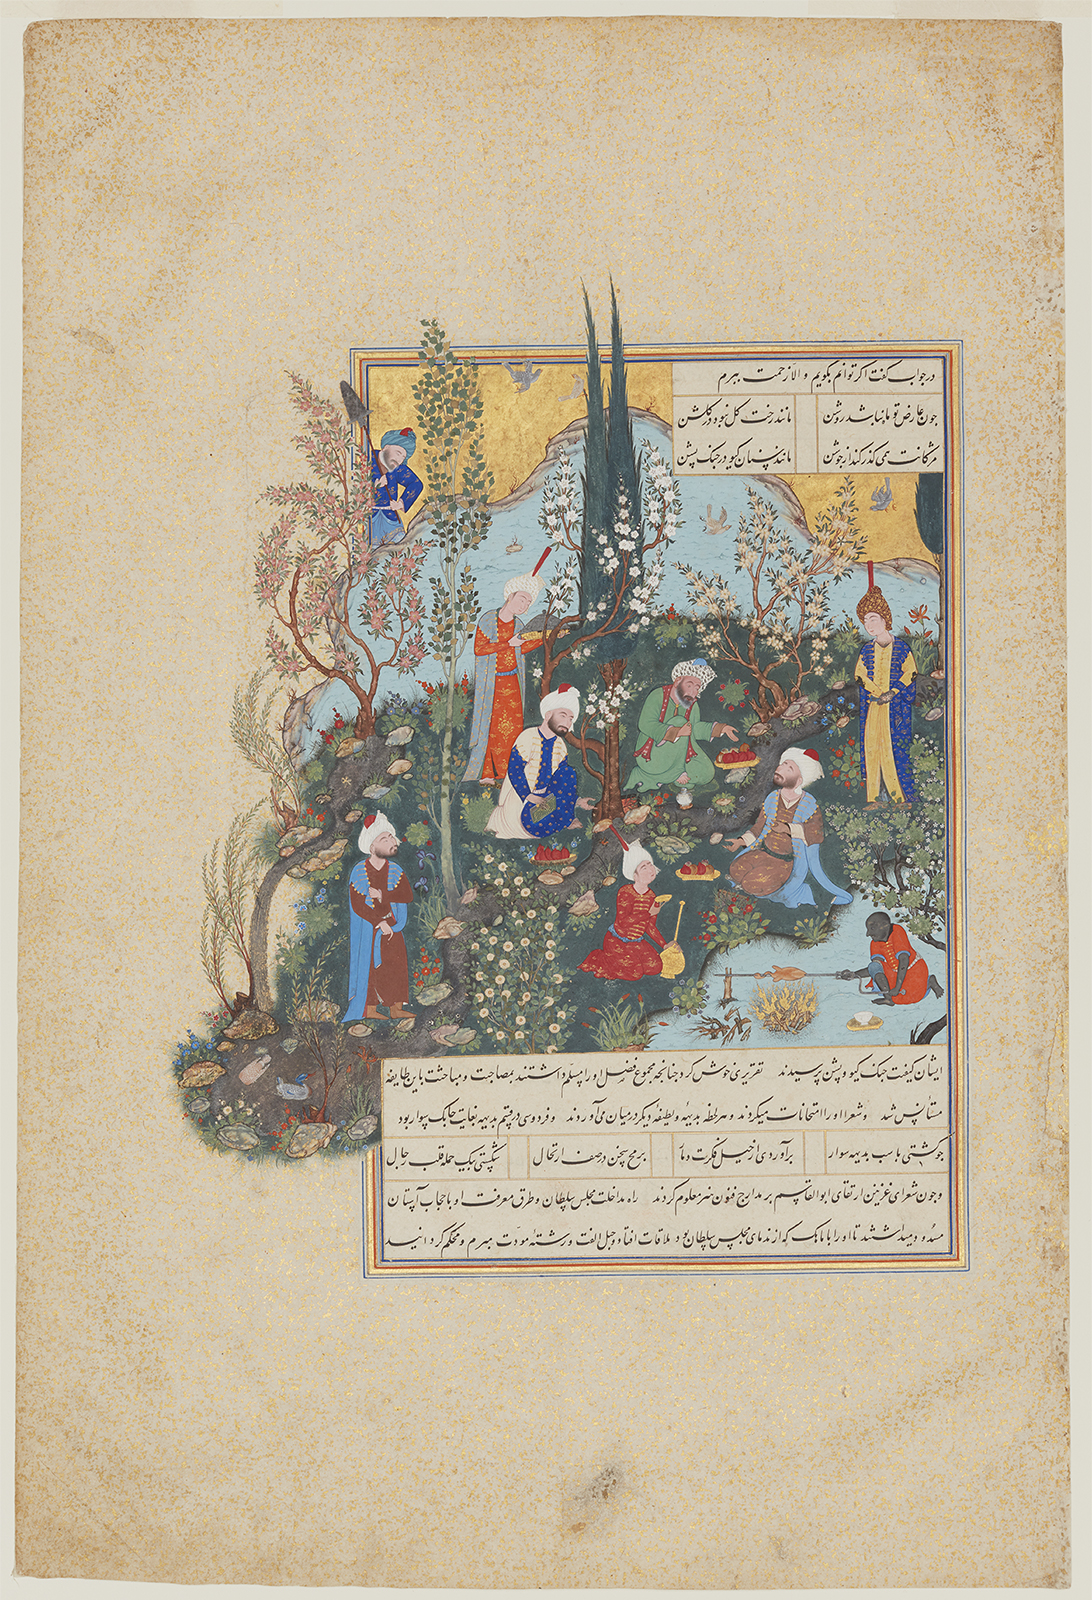 در جواب گفت اگر توانم بگویم و الا زحمت ببرم
چون عارض تو ماه نباشد روشن مانند رخت گل نبود در گلشن
مژگانت همی گذر کند از جوشن مانند سنان گیو در جنگ پشن
ایشان کیفیت جنگ گیو و پشن پرسیدند تقریری خوش کرد چنانچه مجموع فضل او را مسلم داشتند بمصاحبت و مباحثت با این طایفه
مستانس شد و شعرا او را امتحانات میکردند و هر لحظه بدیهه و لطیفه دیگر در میان می آوردند و فردوسی در قسم بدیهه بغایت چابک سوار بود
چو گشتی بر اسب بدیهه سوار برآوردی از خیل فکرت دمار برمح سخن در صف ارتجال شکستی بیک حمله قلب رجال
و چون شعرای غزنین ارتقای ابوالقاسم بر مدارج فنون هنر معلوم کردند راه مداخلت مجلس سلطان و طرق معرفت او با حجاب آستان
مسدود میداشتند تا او را با ماهک که از ندمای مجلس سلطان بود ملاقات افتاد و حبل الفت و رشته مودت مبرم و محکم گردانید